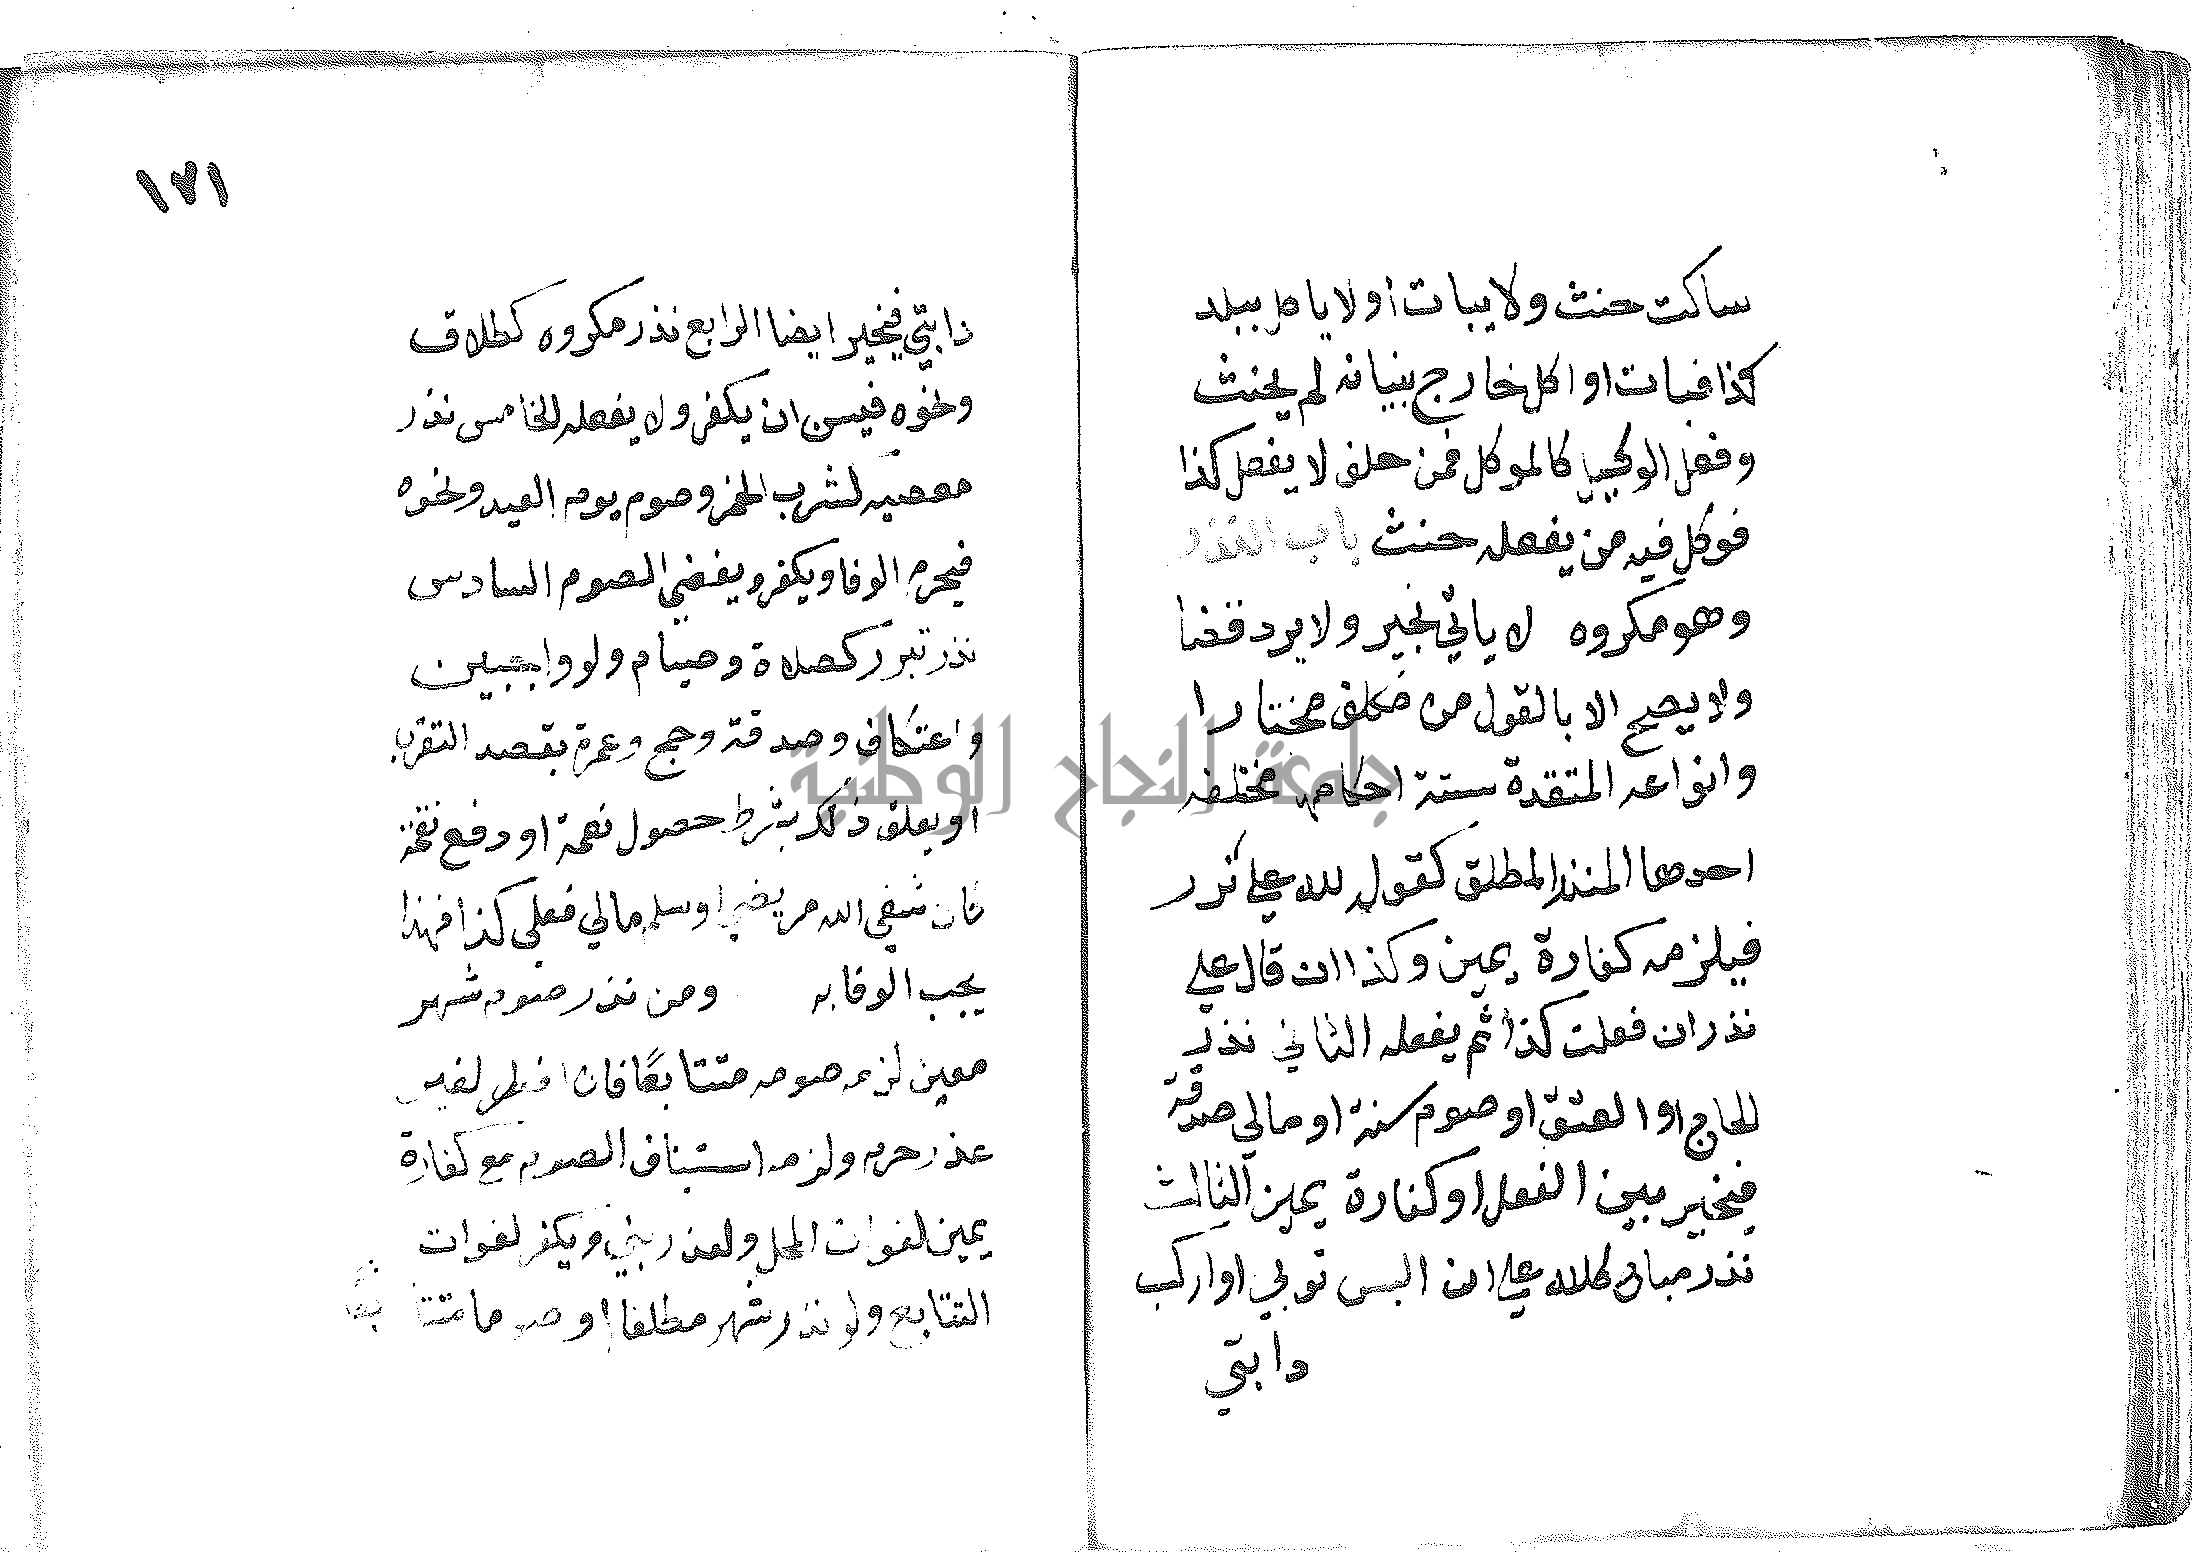 ساكت حنث ولا يبات أو لا ياكل ببلد
كذا فبات او اكل خارج بنيانه لم يحنث
وفعل الوكيل كالموكل فمن حلف لا يفعل كذا
فوكل فيه من يفعله حنث باب النذر
وهو مكروه لا ياتي بخير ولا يرد قضا
ولا يصح الا بالقول من مكلف مختارا
وانواعه المنعقدة ستة احكامها مختلفه
احدها النذر المطلق كقول لله علي نذر
فيلزمه كفارة يمين وكذا ان قال علي
نذر ان فعلت كذا ثم يفعله الثاني نذر
لجاج او العتق او صوم سنة او مالي صدقة
فيخير بين الفعل او كفارة يمين الثالث
نذر مباح كلله علي ان البس ثوبي او اركب
دابتي
١٧١
دابتي فيخير ايضا الرابع نذر مكروه كطلاق
ونحوه فيسن ان يكفر ولا يفعله الخامس نذر
معصيه كشرب الخمر وصوم يوم العيد ونحوه
فيحرم الوفا ويكفر ويقضي الصوم السادس
نذر تبرر كصلاة وصيام ولو واجبين
واعتكاف وصدقة وحج وعمرة بقصد التقرب
او يعلق ذلك بشرط حصول نعمة او دفع نقمة
فان شفي الله مريضي او سلم مالي فعلي كذا فهذا
يجب الوفا به ومن نذر صوم شهر
معين لزمه صومه متتابعًا فان افطر لغير
عذر حرم ولزمه استيناف الصوم مع كفارة
يمين لفوات المحل ولعذر بني ويكفر لفوات
التتابع ولو نذر شهر مطلقا او صوما متتابعا
جامعة النجاح الوطنية